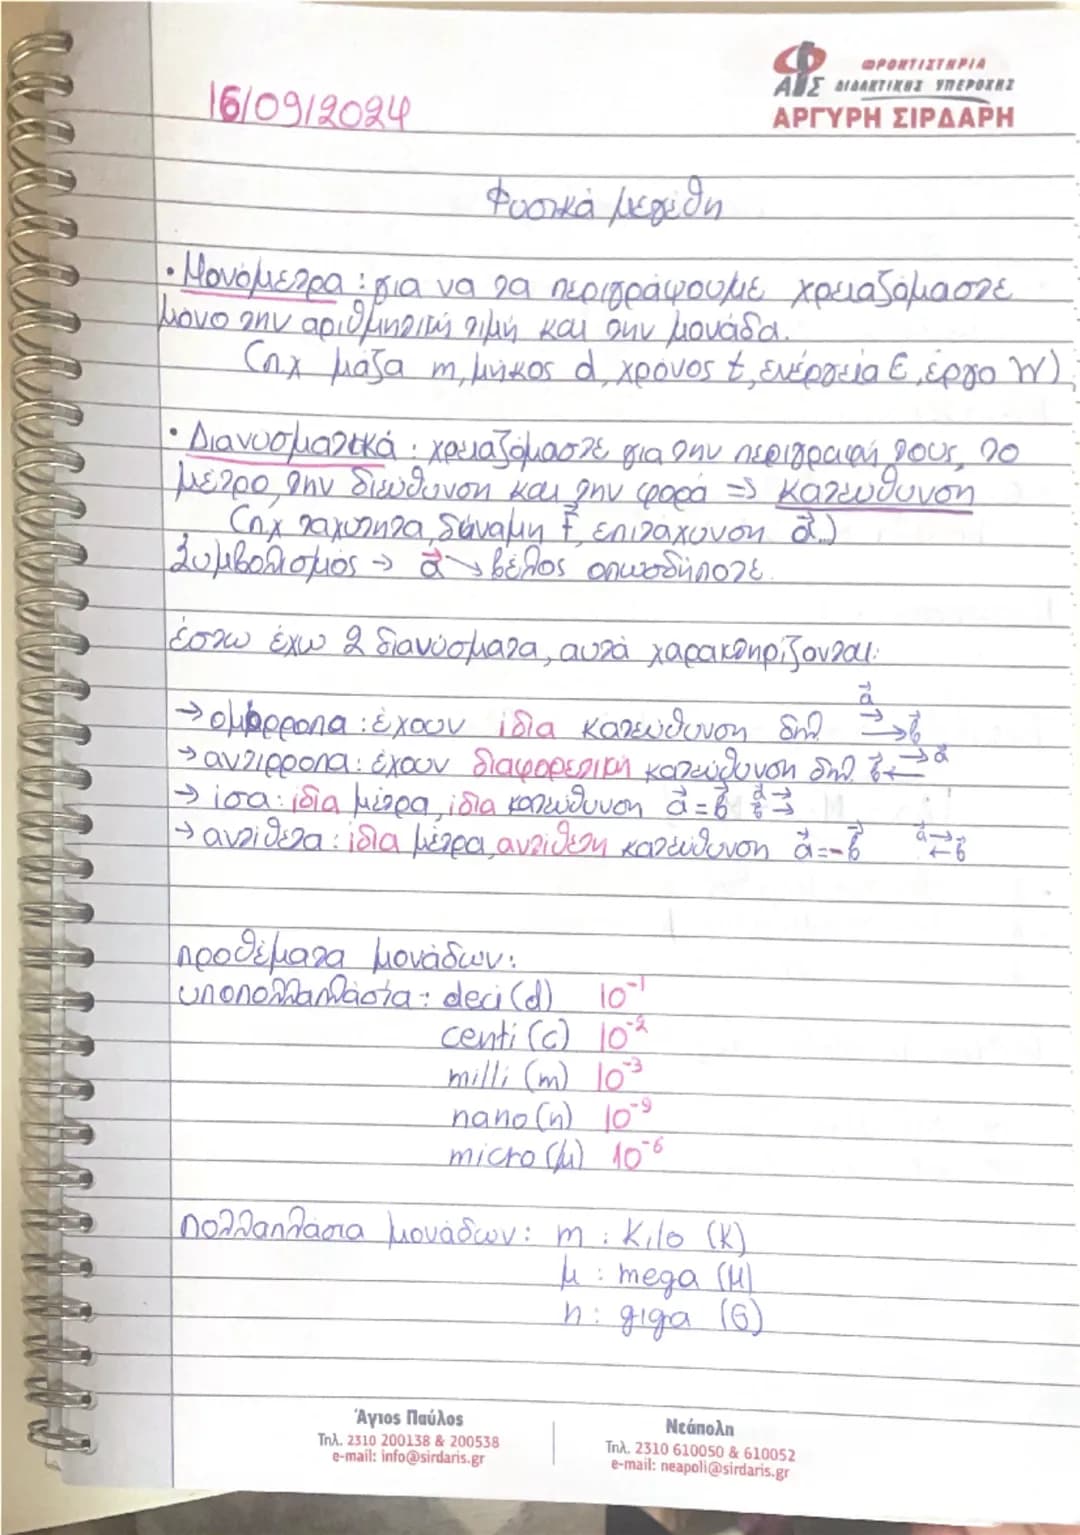 16/09/2024
ΦΡΟΝΤΙΣΤΗΡΙΑ
ΔΙΔΑΚΤΙΚΗΣ ΥΠΕΡΟΧΗΣ
ΑΡΓΥΡΗ ΣΙΡΔΑΡΗ
Φυσικά μεγέθη
• Μονόμετρα : για να τα περιγράψουμε χρειαζόμαστε
μόνο την αριθμητική τιμή και την μονάδα.
(πχ μάζα m, μήκος d, χρόνος t, ενέργεια E, έργο W)
• Διανυσματικά : χρειαζόμαστε για την περιγραφή τους, το
μέτρο, την διεύθυνση και την φορά => κατεύθυνση
(πχ ταχύτητα, δύναμη F⃗, επιτάχυνση α⃗)
Συμβολισμός → α⃗ → βέλος οπωσδήποτε.
έστω έχω 2 διανύσματα, αυτά χαρακτηρίζονται:
α⃗
→ ομόρροπα : έχουν ίδια κατεύθυνση δηλ → → β⃗
→ αντίρροπα : έχουν διαφορετική κατεύθυνση δηλ. β⃗ ← → α⃗
→ ίσα : ίδια μέτρα, ίδια κατεύθυνση α⃗ = β⃗ α⃗ → β⃗ →
→ αντίθετα : ίδια μέτρα, αντίθετη κατεύθυνση α⃗ = -β⃗ α⃗ → ← β⃗
προθέματα μονάδων:
υποπολλαπλάσια : deci (d) 10⁻¹
centi (c) 10⁻²
milli (m) 10⁻³
nano (n) 10⁻⁹
micro (μ) 10⁻⁶
πολλαπλάσια μονάδων : m : Kilo (K)
μ : mega (M)
n : giga (G)
Άγιος Παύλος
Τηλ. 2310 200138 & 200538
e-mail: info@sirdaris.gr
Νεάπολη
Τηλ. 2310 610050 & 610052
e-mail: neapoli@sirdaris.gr